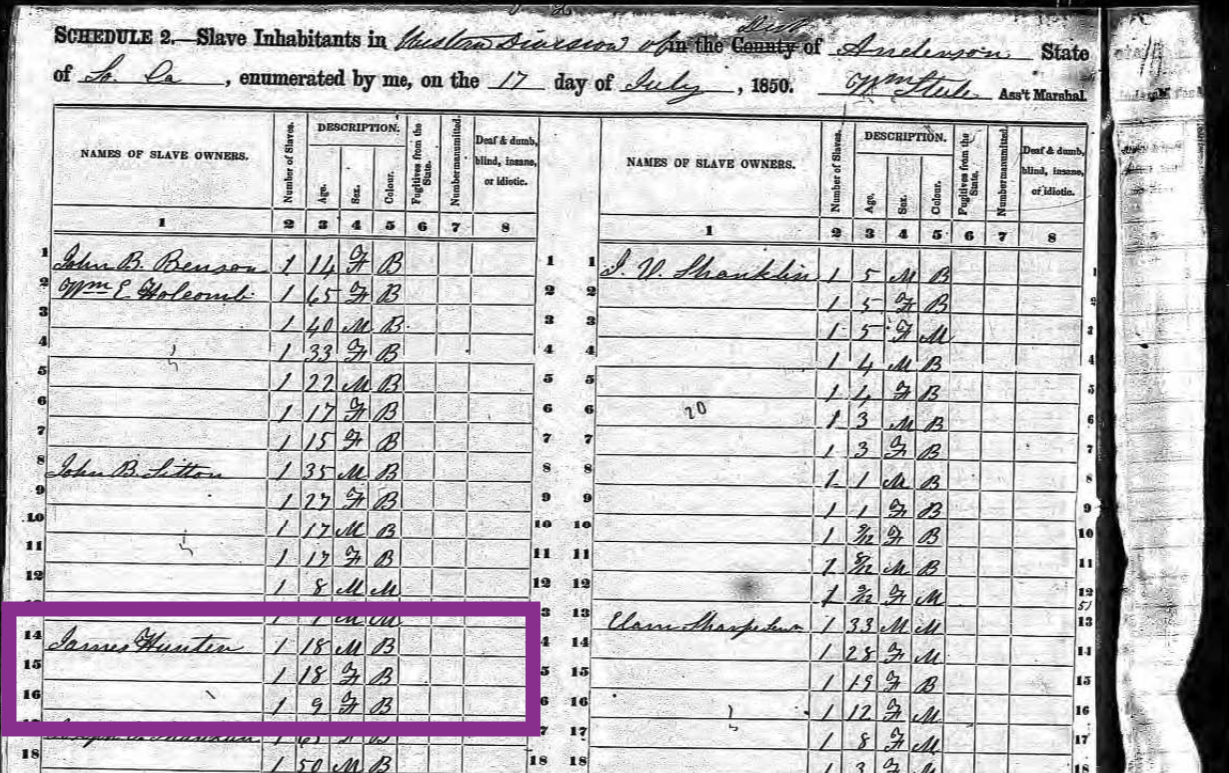 SCHEDULE 2.—Slave Inhabitants in Western Division of in the County Dist of Anderson State
of So. Ca , enumerated by me, on the 17 day of July , 1850. Wm Steele Ass't Marshal.
NAMES OF SLAVE OWNERS. Number of Slaves. DESCRIPTION. Age. Sex. Colour. Fugitives from the State. Number manumitted. Deaf & dumb, blind, insane, or idiotic. NAMES OF SLAVE OWNERS. Number of Slaves. DESCRIPTION. Age. Sex. Colour. Fugitives from the State. Number manumitted. Deaf & dumb, blind, insane, or idiotic.
1 2 3 4 5 6 7 8 1 2 3 4 5 6 7 8
1 John B. Benson 1 14 F B 1 1 J. V. Shanklin 1 5 M B 1
2 Wm E Holcomb 1 65 F B 2 2 1 5 F B 2
3 1 40 M B 3 3 1 5 F M 3
4 1 33 F B 4 4 1 4 M B 4
5 1 22 M B 5 5 1 4 F B 5
6 1 17 F B 6 6 20 1 3 M B 6
7 1 15 F B 7 7 1 3 F B 7
8 John B. Sitton 1 35 M B 8 8 1 1 M B 8
9 1 27 F B 9 9 1 1 F B 9
10 1 17 M B 10 10 1 F B 10
11 1 17 F B 11 11 1 M B 11
12 1 8 M M 12 12 1 F M 12
1 1 M M 3 13 Elam Sharpe 1 33 M M 13
14 James Hunter 1 18 M B 4 14 1 28 F M 14
15 1 18 F B 5 15 1 19 F B 15
16 1 9 F B 6 16 1 12 F M 16
1 B 7 17 1 8 F M 17
18 1 50 M B 18 18 1 3 18